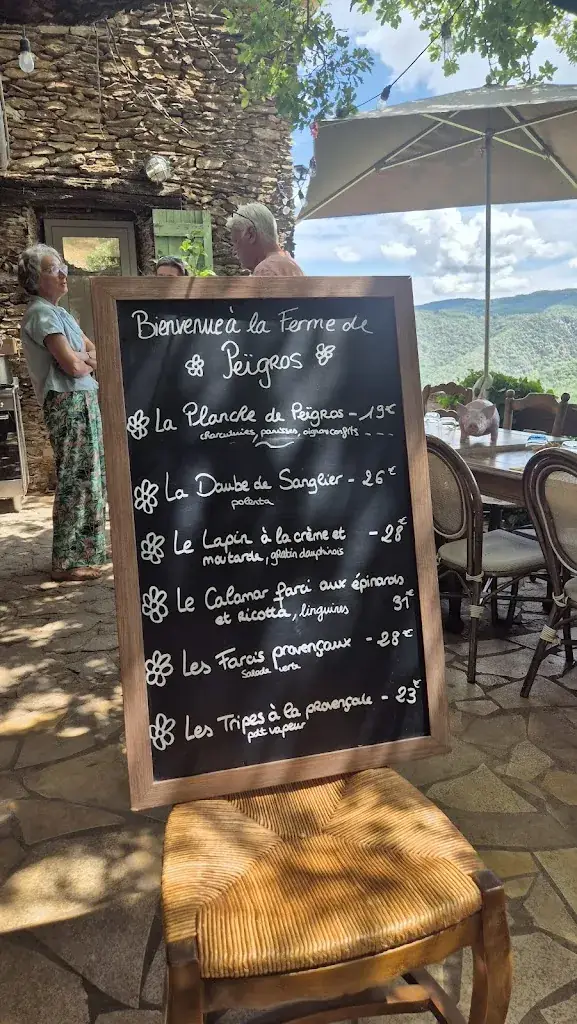 Bienvenue à la Ferme de
Peïgros
La Planche de Peïgros - 19€
charcuteries, panisses, oignons confits ...
La Daube de Sanglier - 26€
polenta
Le Lapin à la crème et - 28€
moutarde, gratin dauphinois
Le Calamar farci aux épinards
et ricotta, linguines 31€
Les Farcis provençaux - 28€
Salade verte
Les Tripes à la provençale - 23€
pdt vapeur